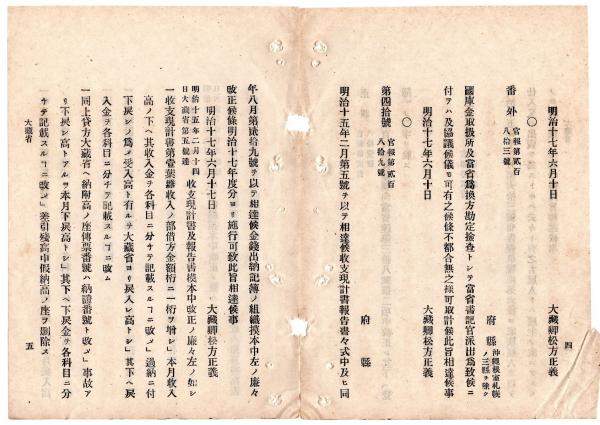 四
明治十七年六月十日
大藏卿松方正義
〇
番外 官報第貳百八拾三號
府縣 沖繩根室札幌ノ三縣ヲ除ク
國庫金取扱所及當省爲換方勘定撿査トシテ當省書記官派出爲致候ニ
付テハ及協議候儀モ可有之候條不都合無之樣可取計候此旨相達候事
明治十七年六月十日
大藏卿松方正義
〇
第四拾號 官報第貳百八拾九號
府縣
明治十五年二月第五號ヲ以テ相達候收支現計書報告書々式中及ヒ同
年八月第貳拾九號ヲ以テ相達候金錢出納記簿ノ組織摸本中左ノ廉々
改正候條明治十七年度分ヨリ施行可致此旨相達候事
明治十七年六月十七日
大藏卿松方正義
明治十五年二月十四日大藏省第五號達
收支現計書及報告書摸本中改正ノ廉々左ノ如シ
一收支現計書第壹葉雜收入ノ部借方金額桁ニ一桁ヲ增シ」本月收入
高ノ下ヘ其收入金ヲ各科目ニ分ケテ記載スルヿニ改メ」過納ニ付
下戾シノ爲メ受入高ト有ルヲ大藏省ヨリ戾入レ高トシ」其下ヘ戾
入金ヲ各科目ニ分チテ記載スルヿニ改ム
一同上貸方大藏省ヘ納附高ノ座傳票番號ハ納證番號ト改メ」事故ア
リ下戾シ高トアルヲ本月下戾高トシ」其下ヘ下戾金ヲ各科目ニ分
ケテ記載スルヿニ改メ」差引殘高中假納高ノ座ヲ刪除ス
大藏省
五